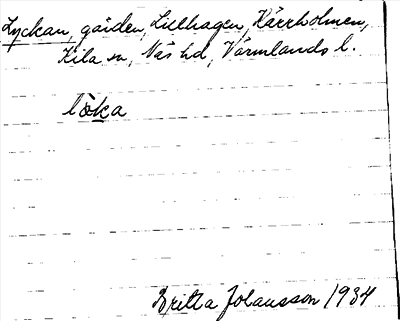 Lyckan, gården, Lillhagen, Kärrholmen,
Kila sn, Näs hd, Värmlands l.
lö̀ka
Britta Johansson 1934